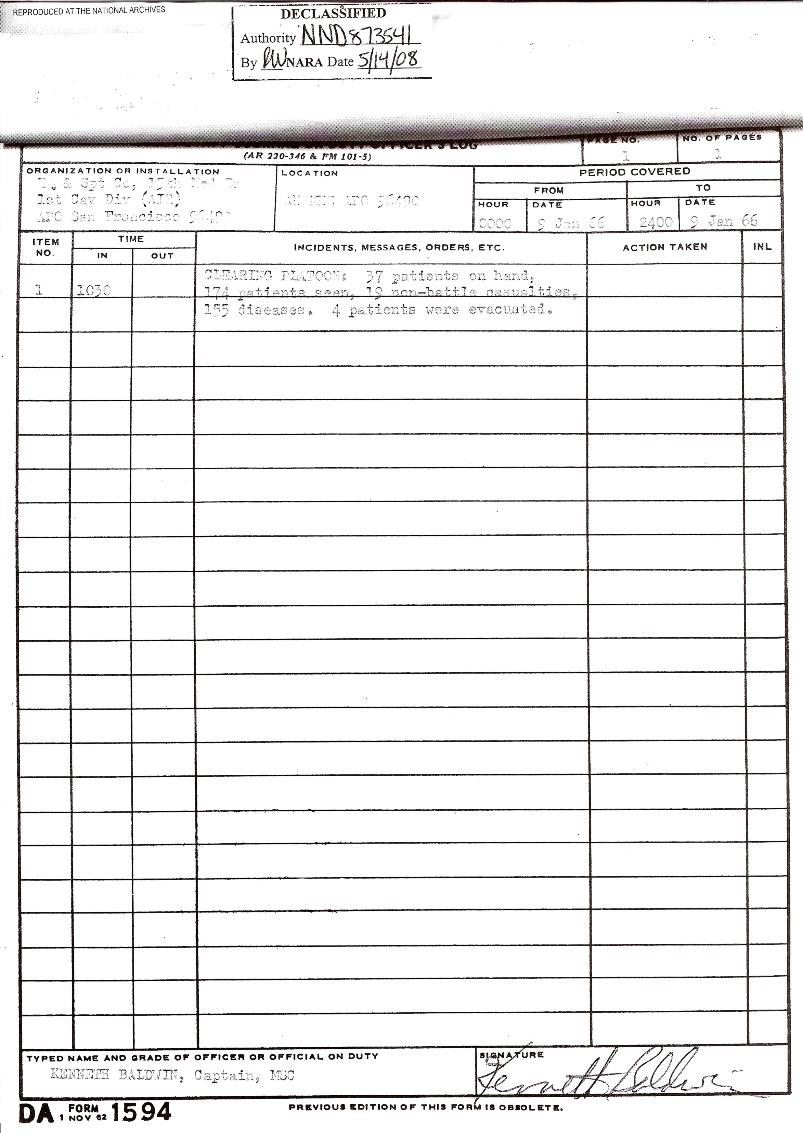 REPRODUCED AT THE NATIONAL ARCHIVES
DECLASSIFIED
Authority NND873541
By NARA Date 5/14/08
OFFICER'S LOG
(AR 220-346 & FM 101-5)
PAGE NO.
1
NO. OF PAGES
1
ORGANIZATION OR INSTALLATION
& Spt Co, 15th Med Bn
1st Cav Div (AIR)
APO San Francisco 96490
LOCATION
AN KHE APO 96490
PERIOD COVERED
FROM
TO
HOUR
DATE
HOUR
DATE
0000
9 Jan 66
2400
9 Jan 66
ITEM NO.
TIME
IN
OUT
INCIDENTS, MESSAGES, ORDERS, ETC.
ACTION TAKEN
INL
1
1030
CLEARING PLATOON: 37 patients on hand,
174 patients seen, 19 non-battle casualties,
155 diseases. 4 patients were evacuated.
TYPED NAME AND GRADE OF OFFICER OR OFFICIAL ON DUTY
KENNETH BALDWIN, Captain, MSC
SIGNATURE
Kenneth Baldwin
DA FORM 1594
1 NOV 62
PREVIOUS EDITION OF THIS FORM IS OBSOLETE.